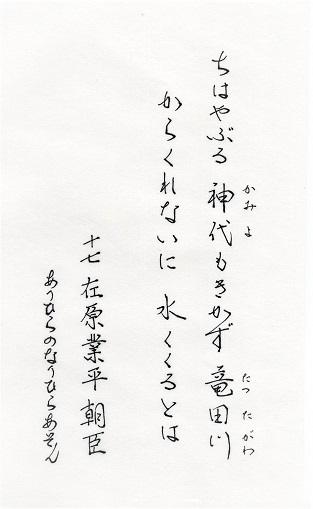 ちはやぶる 神代もきかず 竜田川
かみよ
たつたがわ
からくれないに 水くくるとは
十七 在原業平朝臣
ありひらのなりひらあそん